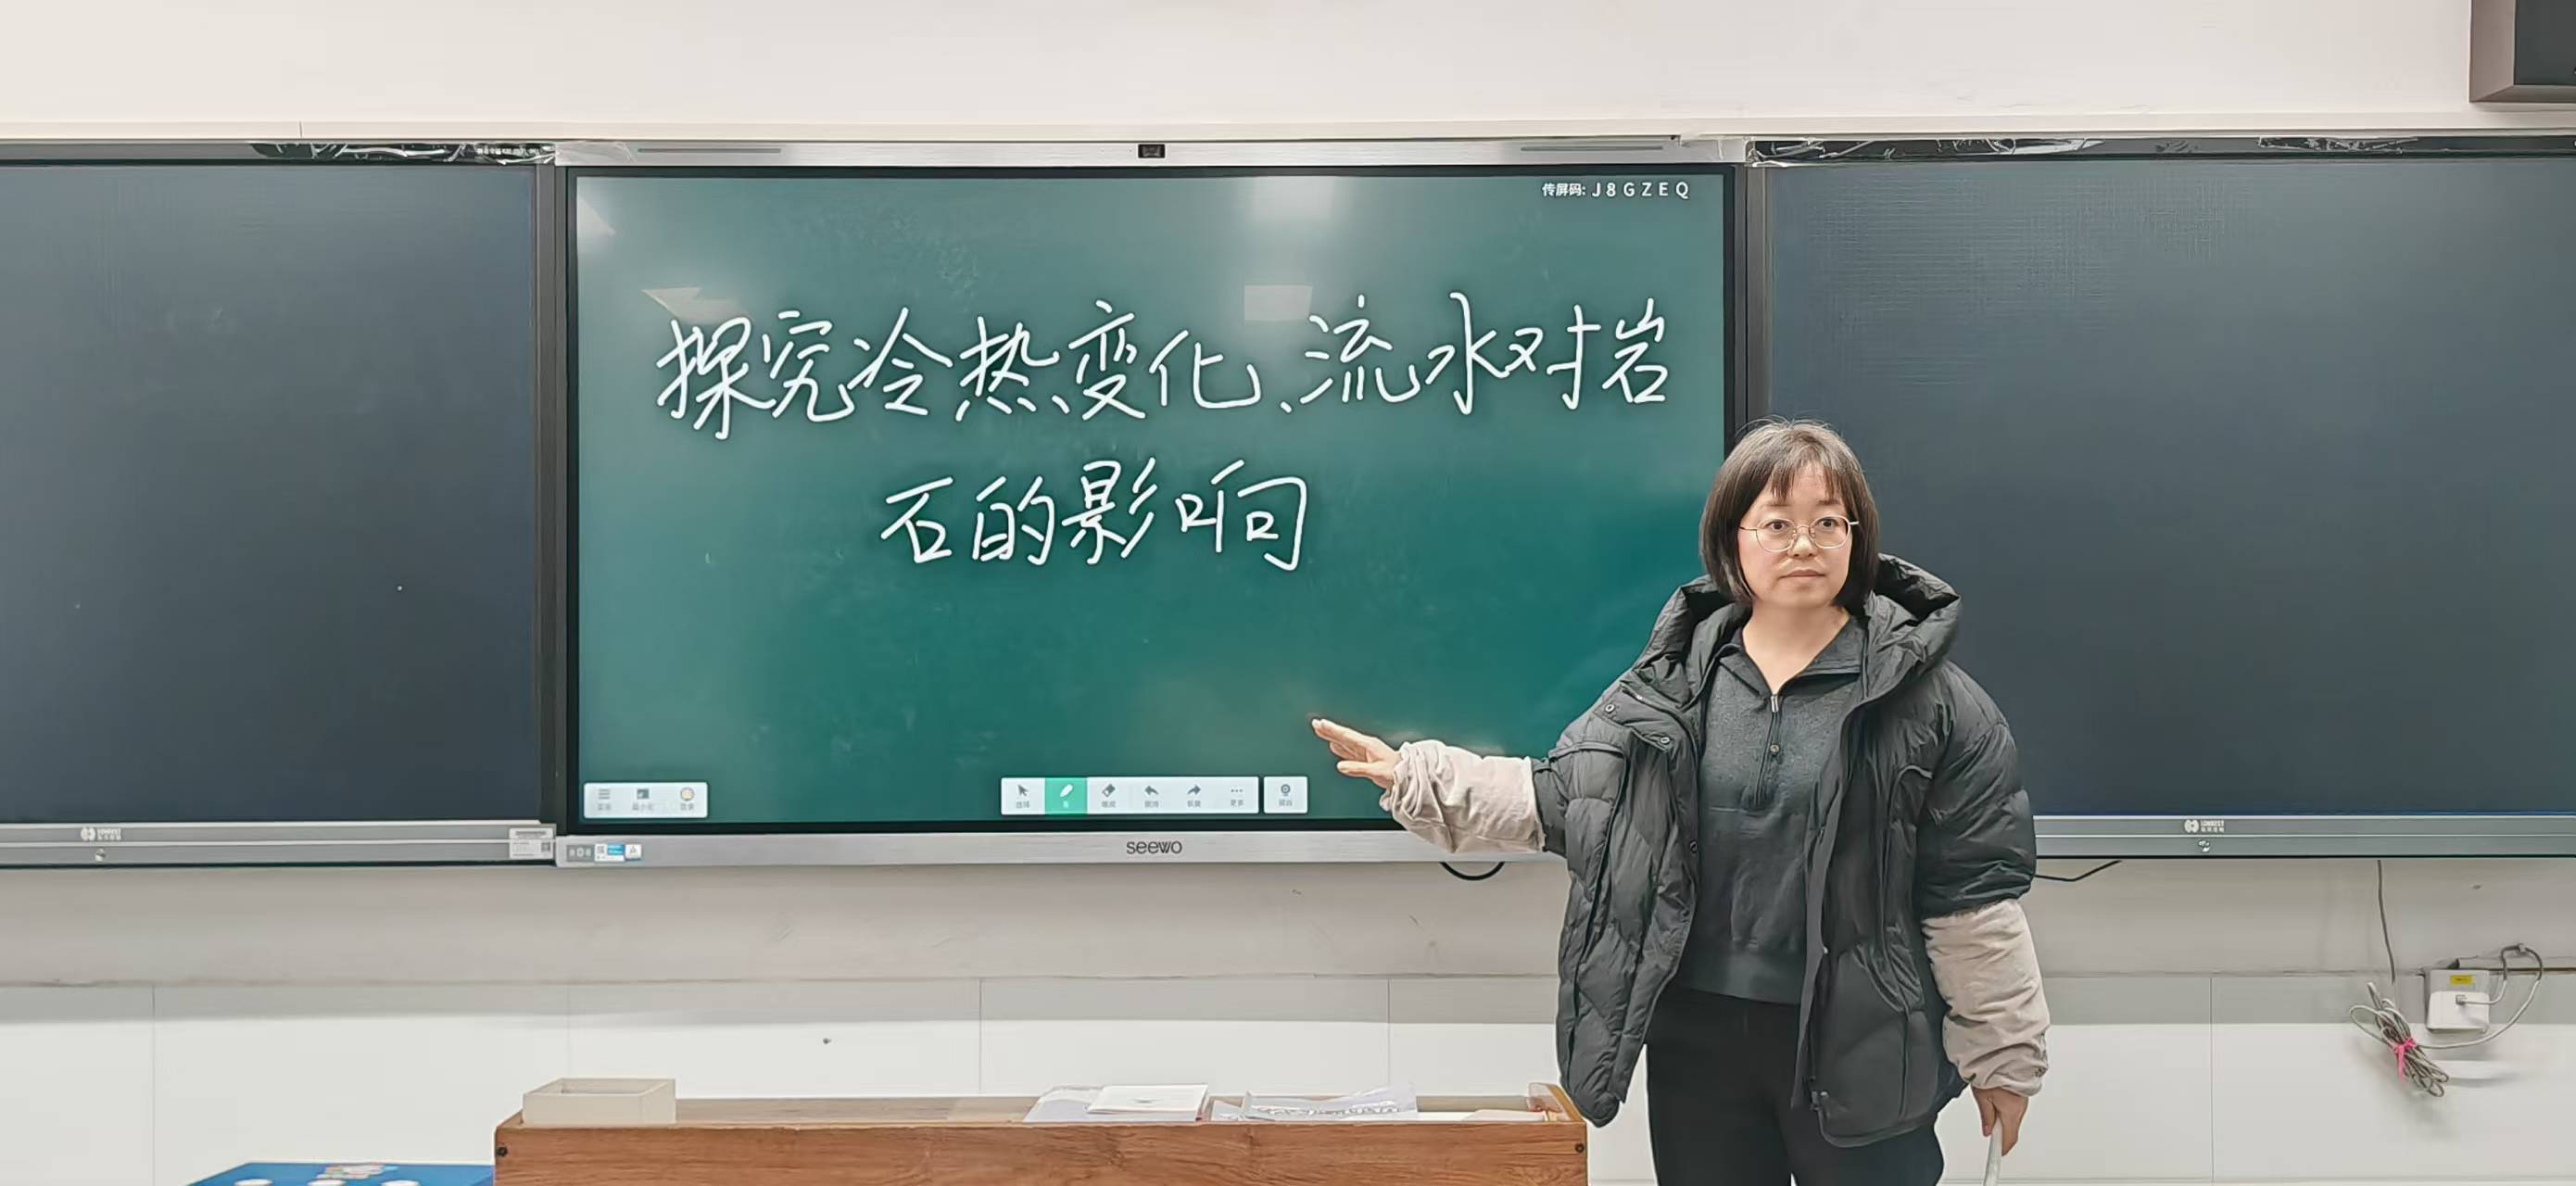 传屏码: J8GZEQ
探究冷热变化、流水对岩
石的影响
seewo